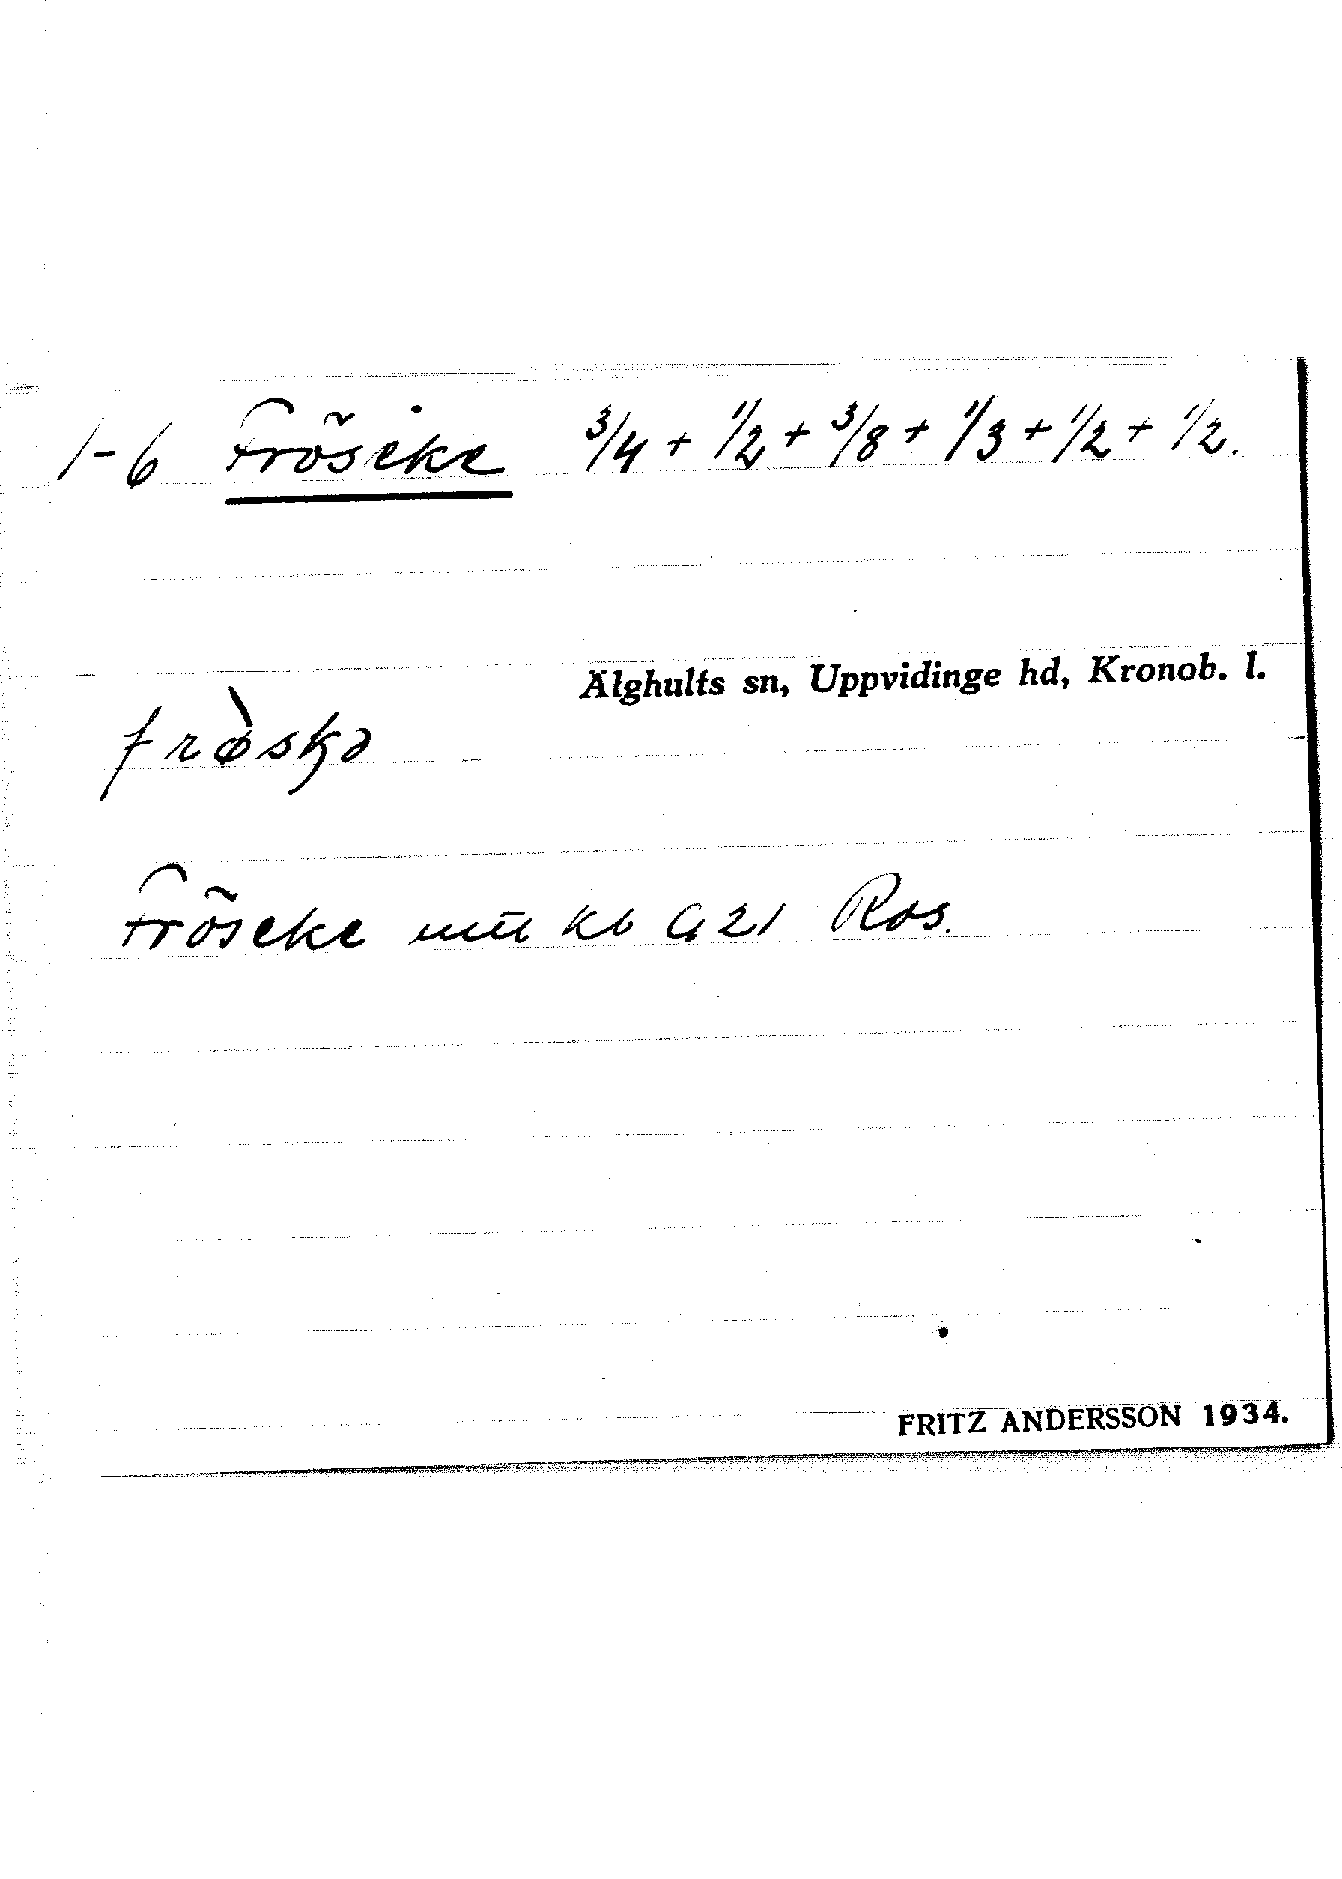 1-6 Fröseke 3/4 + 1/2 + 3/8 + 1/3 + 1/2 + 1/2.
Älghults sn, Uppvidinge hd, Kronob. l.
frø̀skə
Fröseke mtl kb G 21 Ros.
FRITZ ANDERSSON 1934.